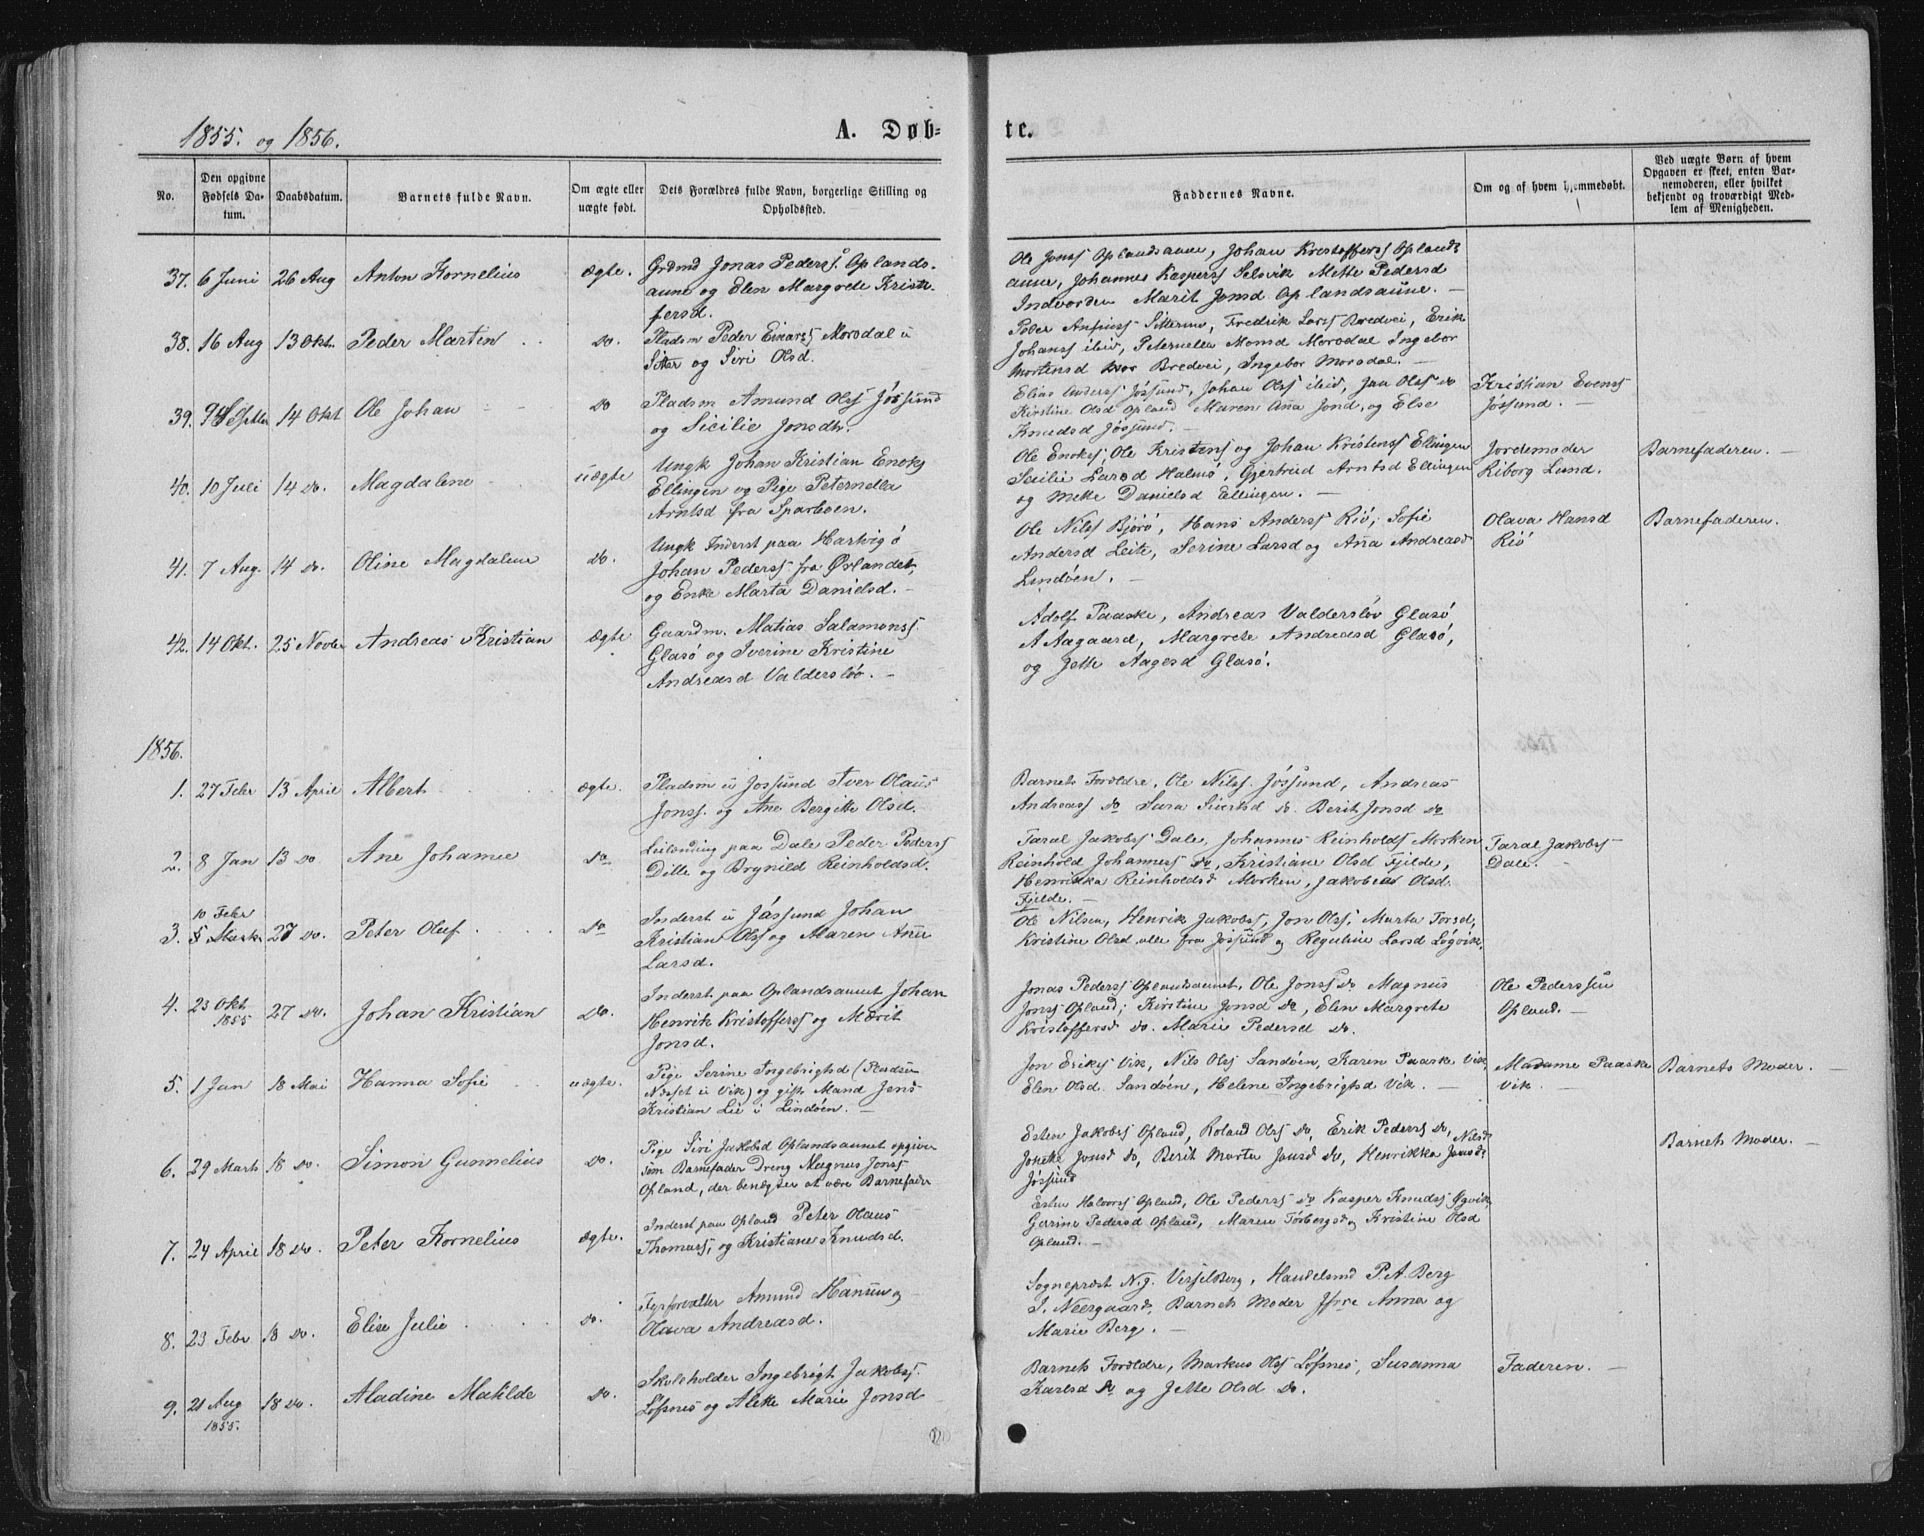 1855. og 1856.
A. Døb-
te.
No.
Den opgivne
Fødsels Da-
tum.
Daabsdatum.
Barnets fulde Navn.
Om ægte eller
uægte født.
Dets Forældres fulde Navn, borgerlige Stilling og
Opholdssted.
Faddernes Navne.
Om og af hvem hjemmedøbt.
Ved uægte Børn af hvem
Opgaven er skeet, enten Bar-
nemoderen, eller hvilket
bekjendt og troværdigt Med-
lem af Menigheden.
37. 6 Juni 26 Aug Anton Kornelius ægte.
Grdmd Jonas Pederss. Oplands-
aune og Elen Margrete Kristof-
fersd.
Ole Jonss Oplandsaune, Johan Kristofferss Oplands
aune, Johannes Kasperss Selsvik Mette Pedersd
Indvorden Marit Jonsd Oplandsaune. -
38. 16 Aug 13 Okt. Peder Martin do.
Pladsm Peder Einarss Morsdal u
Sitter og Siri Olsd.
Peder Anfinss Sitter, Fredrik Larss Bredvei, Erik
Johanss ibid, Peternella Monsd Morsdal Ingebor
Mortensd Bredvei, Ingebor Morsdal. -
39. 9 Septber 14 Okt Ole Johan do
Pladsm Amund Olss Jøssund
og Sicilie Jonsdtr.
Elias Anderss Jøssund, Johan Olss ibid, Jon Olss do
Kirstine Olsd Opland Maren Ana Jond, og Else
Knudsd Jøssund. -
Kristian Evenss
Jøssund. -
40. 10 Juli 14 do. Magdalene uægte
Ungk Johan Kristian Enoks
Ellingen og Pige Peternella
Arntsd fra Sparboen.
Ole Enoks, Ole Kristenss og Johan Kristenss Ellingen
Sicilie Larsd Halmø, Gjertrud Arntsd Ellingen
og Mette Danielsd Ellingen. -
Jordemoder
Riborg Lund.
Barnefaderen. -
41. 7 Aug. 14 do. Oline Magdalena do.
Ungk Inderst paa Hartvigø
Johan Pederss fra Ørlandet,
og Enke Marta Danielsd. -
Ole Nilss Bjørø, Hans Anderss Riø, Sofie
Andersd Leite, Serine Larsd og Ana Andreasd
Lindøen. -
Olava Hansd
Riø
Barnefaderen.
42. 14 Okt. 25 Novber Andreas Kristian ægte
Gaardm. Matias Salamonss
Glasø og Iverine Kristine
Andreasd Valdersløv. -
Adolf Paaske, Andreas Valdersløv Glasø,
A Aagaard, Margrete Andreasd Glasø,
og Jette Aagesd Glasø.
1856.
1. 27 Febr 13 April Albert ægte.
Pladsm u Jøssund Iver Olaus
Jonss. og Ane Bergitte Olsd.
Barnets Foreldre, Ole Nilss. Jøssund, Andreas
Andreass do Sara Sivertsd do. Berit Jonsd do
2. 8 Jan 13 do Ane Johanne do
Leilending paa Dale Peder Pederss
Dille og Brynild Reinholdsd.
Taral Jakobss Dale, Johannes Reinholdss Morken
Reinhold Johanness do, Kristiane Olsd Fjelde,
Henrikka Reinholdsd Morken, Jakobea Olsd
Fjelde. -
Taral Jakobss
Dale. -
3. 10 Febr
5 Marts 27 do. Peter Oluf do
Inderst u Jøssund Johan
Kristian Olss og Maren Ana
Larsd.
Ole Nilsen, Henrik Jakobss, Jon Olss Marta Torsd,
Kristine Olsd alle fra Jøssund og Reguline Larsd Løgvik.
4. 23 Okt
1855 27 do. Johan Kristian do.
Inderst paa Oplandsaunet Johan
Henrik Kristofferss og Marit
Jonsd.
Jonas Pederss Oplandsaunet, Ole Jonss do Magnus
Jonss Opland; Kirstine Jonsd do, Elen Margrete
Kristoffersd do. Marie Pedersd do.
Ole Pederssen
Opland. -
5. 1 Jan 18 Mai Hanna Sofie uægte.
Pige Serine Ingebrigtsd (Pladsen
Næsset u Vik) og gift Mand Jens
Kristian Lie i Lindøen. -
Jon Erikss Vik, Nils Olss Sandøen, Karen Paaske Vik
Elen Olsd. Sandøen, Helene Ingebrigtsd Vik. -
Madame Paaske
Vik. -
Barnets Moder. -
6. 29 Marts 18 do. Simon Gunnelius do.
Pige Siri Jakobsd Oplandsaunet opgiver
som Barnefader Dreng Magnus Jonss
Opland, der benegter at være Barnefader
Esten Jakobss Opland, Roland Olss do, Erik Pederss do, Nilsd
Jonetta Jonsd do, Berit Marta Jonsd do, Henrikka Jonsd
Jøssund
Barnets Moder. -
7. 24 April 18 do. Peter Kornelius ægte.
Inderst paa Opland Peter Olaus
Thomass, og Kristiane Knudsd.
Esten Halvorss Opland, Ole Pederss do Kasper Knudss Øgvik,
Gurine Pedersd Opland, Maren Torbergsd og Kristine Olsd
Opland. -
8. 23 Febr 18 do. Elise Julie do.
Amund Hansen og
Olava Andreasd.
Sogneprest N.J. Vesselberg, Handelsmd P.A. Berg
I. Neergaard, Barnets Moder Jfrue Anna og
Marie Berg. -
9. 21 Aug
1855. 18 do. Aladine Matilde do.
Skoleholder Ingebrigt Jakobss.
Løfsnes og Aleke Marie Jonsd
Barnets Foreldre, Markus Olss Løfsnes, Susanna
Karlsd do og Jette Olsd do.
Faderen. -